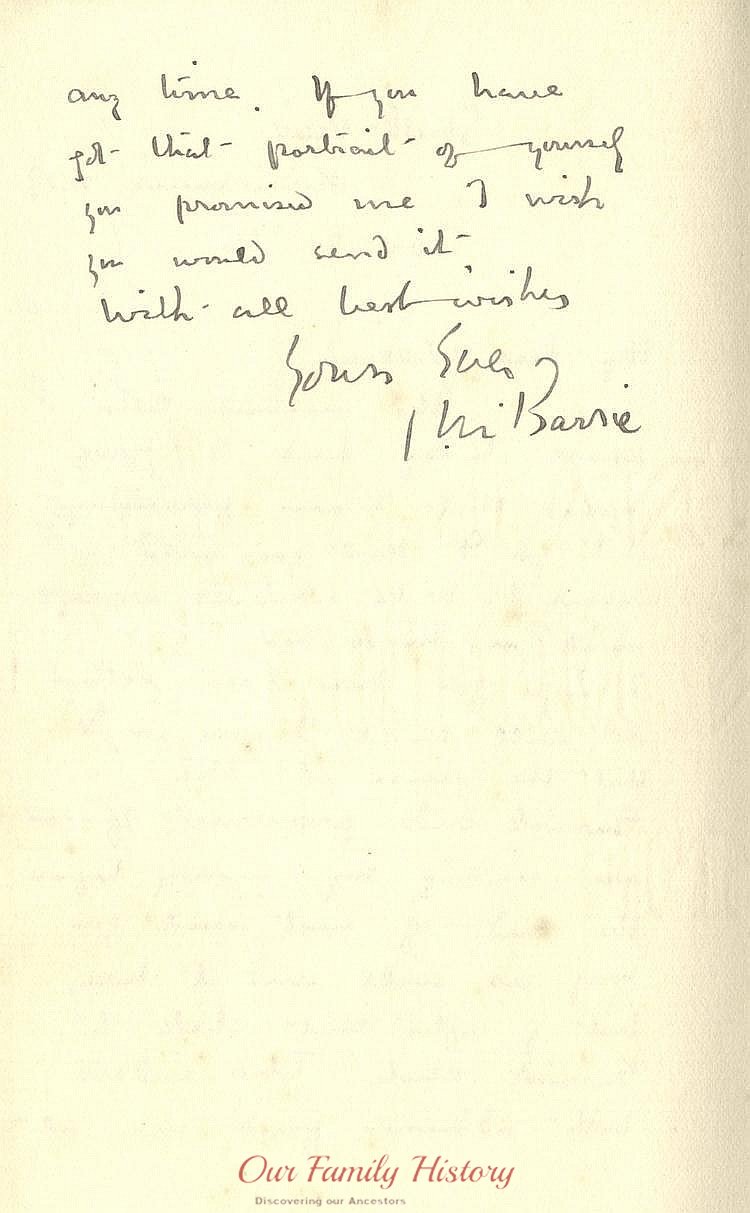 any time. If you have
got that portrait of yourself
you promised me I wish
you would send it
With all best wishes
Yours
J. M. Barrie
Our Family History
Discovering our Ancestors